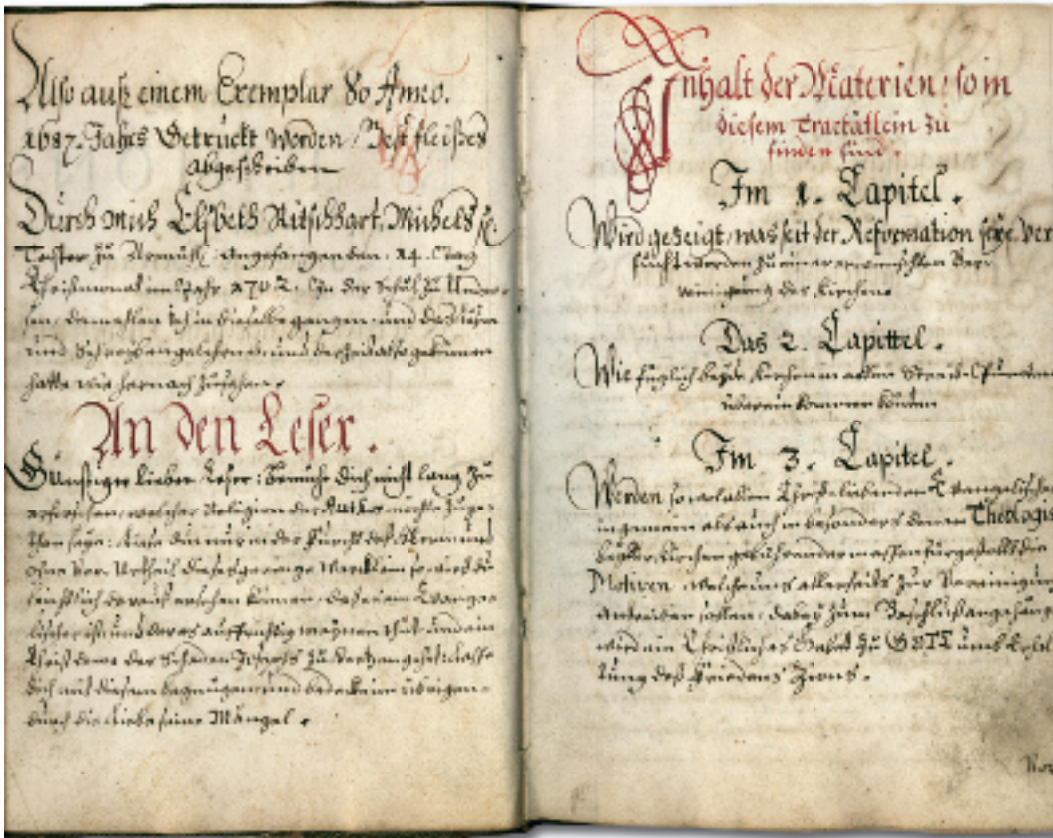 Also auß einem Exemplar So Anno.
1687. Jahrs Getruckt Worden / Mit fleiß es
abgeschriben
Durch mich Elsbeth Ritschhart, Michels
Tochter zu angefangen den 14. Tag
Christmonat im Jahr 1702. In der Schul zu Under-
sen, dermahlen ich in dieselbe gangen und das läsen
und Schreiben und also
hatte wie hernach zusehen.
An den Leser.
Günstiger lieber Leser: bemühe dich nicht lang zu
erforschen, welcher Religion der Author möchte zuge-
than seyn: Lise du nur in der Furcht deß Herren und
ohne Vor-Urtheil dieses geringe Wercklein so wirst du
leichtlich darauß ersehen können, daß er ein Evange-
lischer ist, und der es auffrichtig meynen thut und ein
Christ deme der Schaden Josephs zu Hertzen gehet: lasse
dich mit diesem begnügen und bedecke im übrigen
durch die Liebe seine Mängel.
Inhalt der Materien / so in
diesem Tractätlein zu
finden sind.
Im 1. Capitel.
Wird gezeigt, was seit der Reformation seye ver
sucht worden zu einer erwünschten Ver
einigung der Kirchen.
Das 2. Capittel.
Wie füglich beyde Kirchen in allen Streit-Puncten
überein kommen könten
Im 3. Capitel.
Werden so wol allen Christliebenden Evangelischen
in gemein als auch in besonders denen Theologis
beyder Kirchen gebührender massen fürgestelt die
Motiven, welche uns allerseits zur Vereinigung
antreiben sollen: dabey zum Beschluß angehängt
wird ein Christliches Gebet zu GOTT umb Erhal
tung deß Friedens Zions.